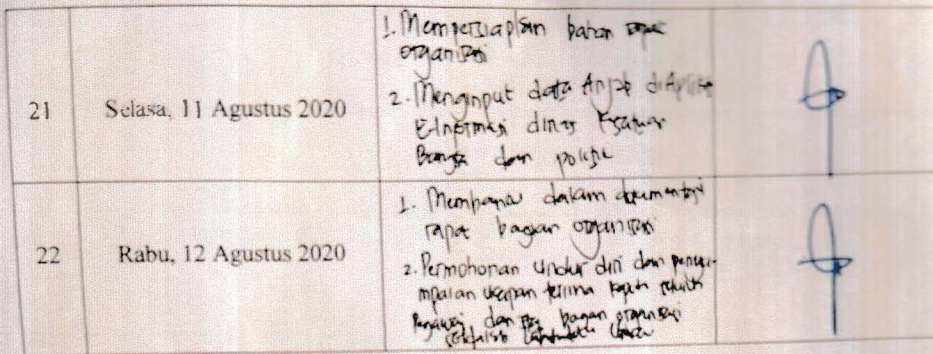 21
Selasa, 11 Agustus 2020
1. Mempersiapkan bahan rapat
organisasi
2. Menginput data Anjab di Aplikasi
E-Informasi dinas Kesatuan
Bangsa dan politik
22
Rabu, 12 Agustus 2020
1. Membantu dalam dokumentasi
rapat bagian organisasi
2. Permohonan undur diri dan penya-
mpaian ucapan terima kasih seluruh
Pegawai dan bagian organisasi